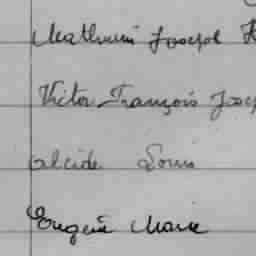 Mathurin Joseph
Victor François Jose
Alcide Louis
Eugène Marie